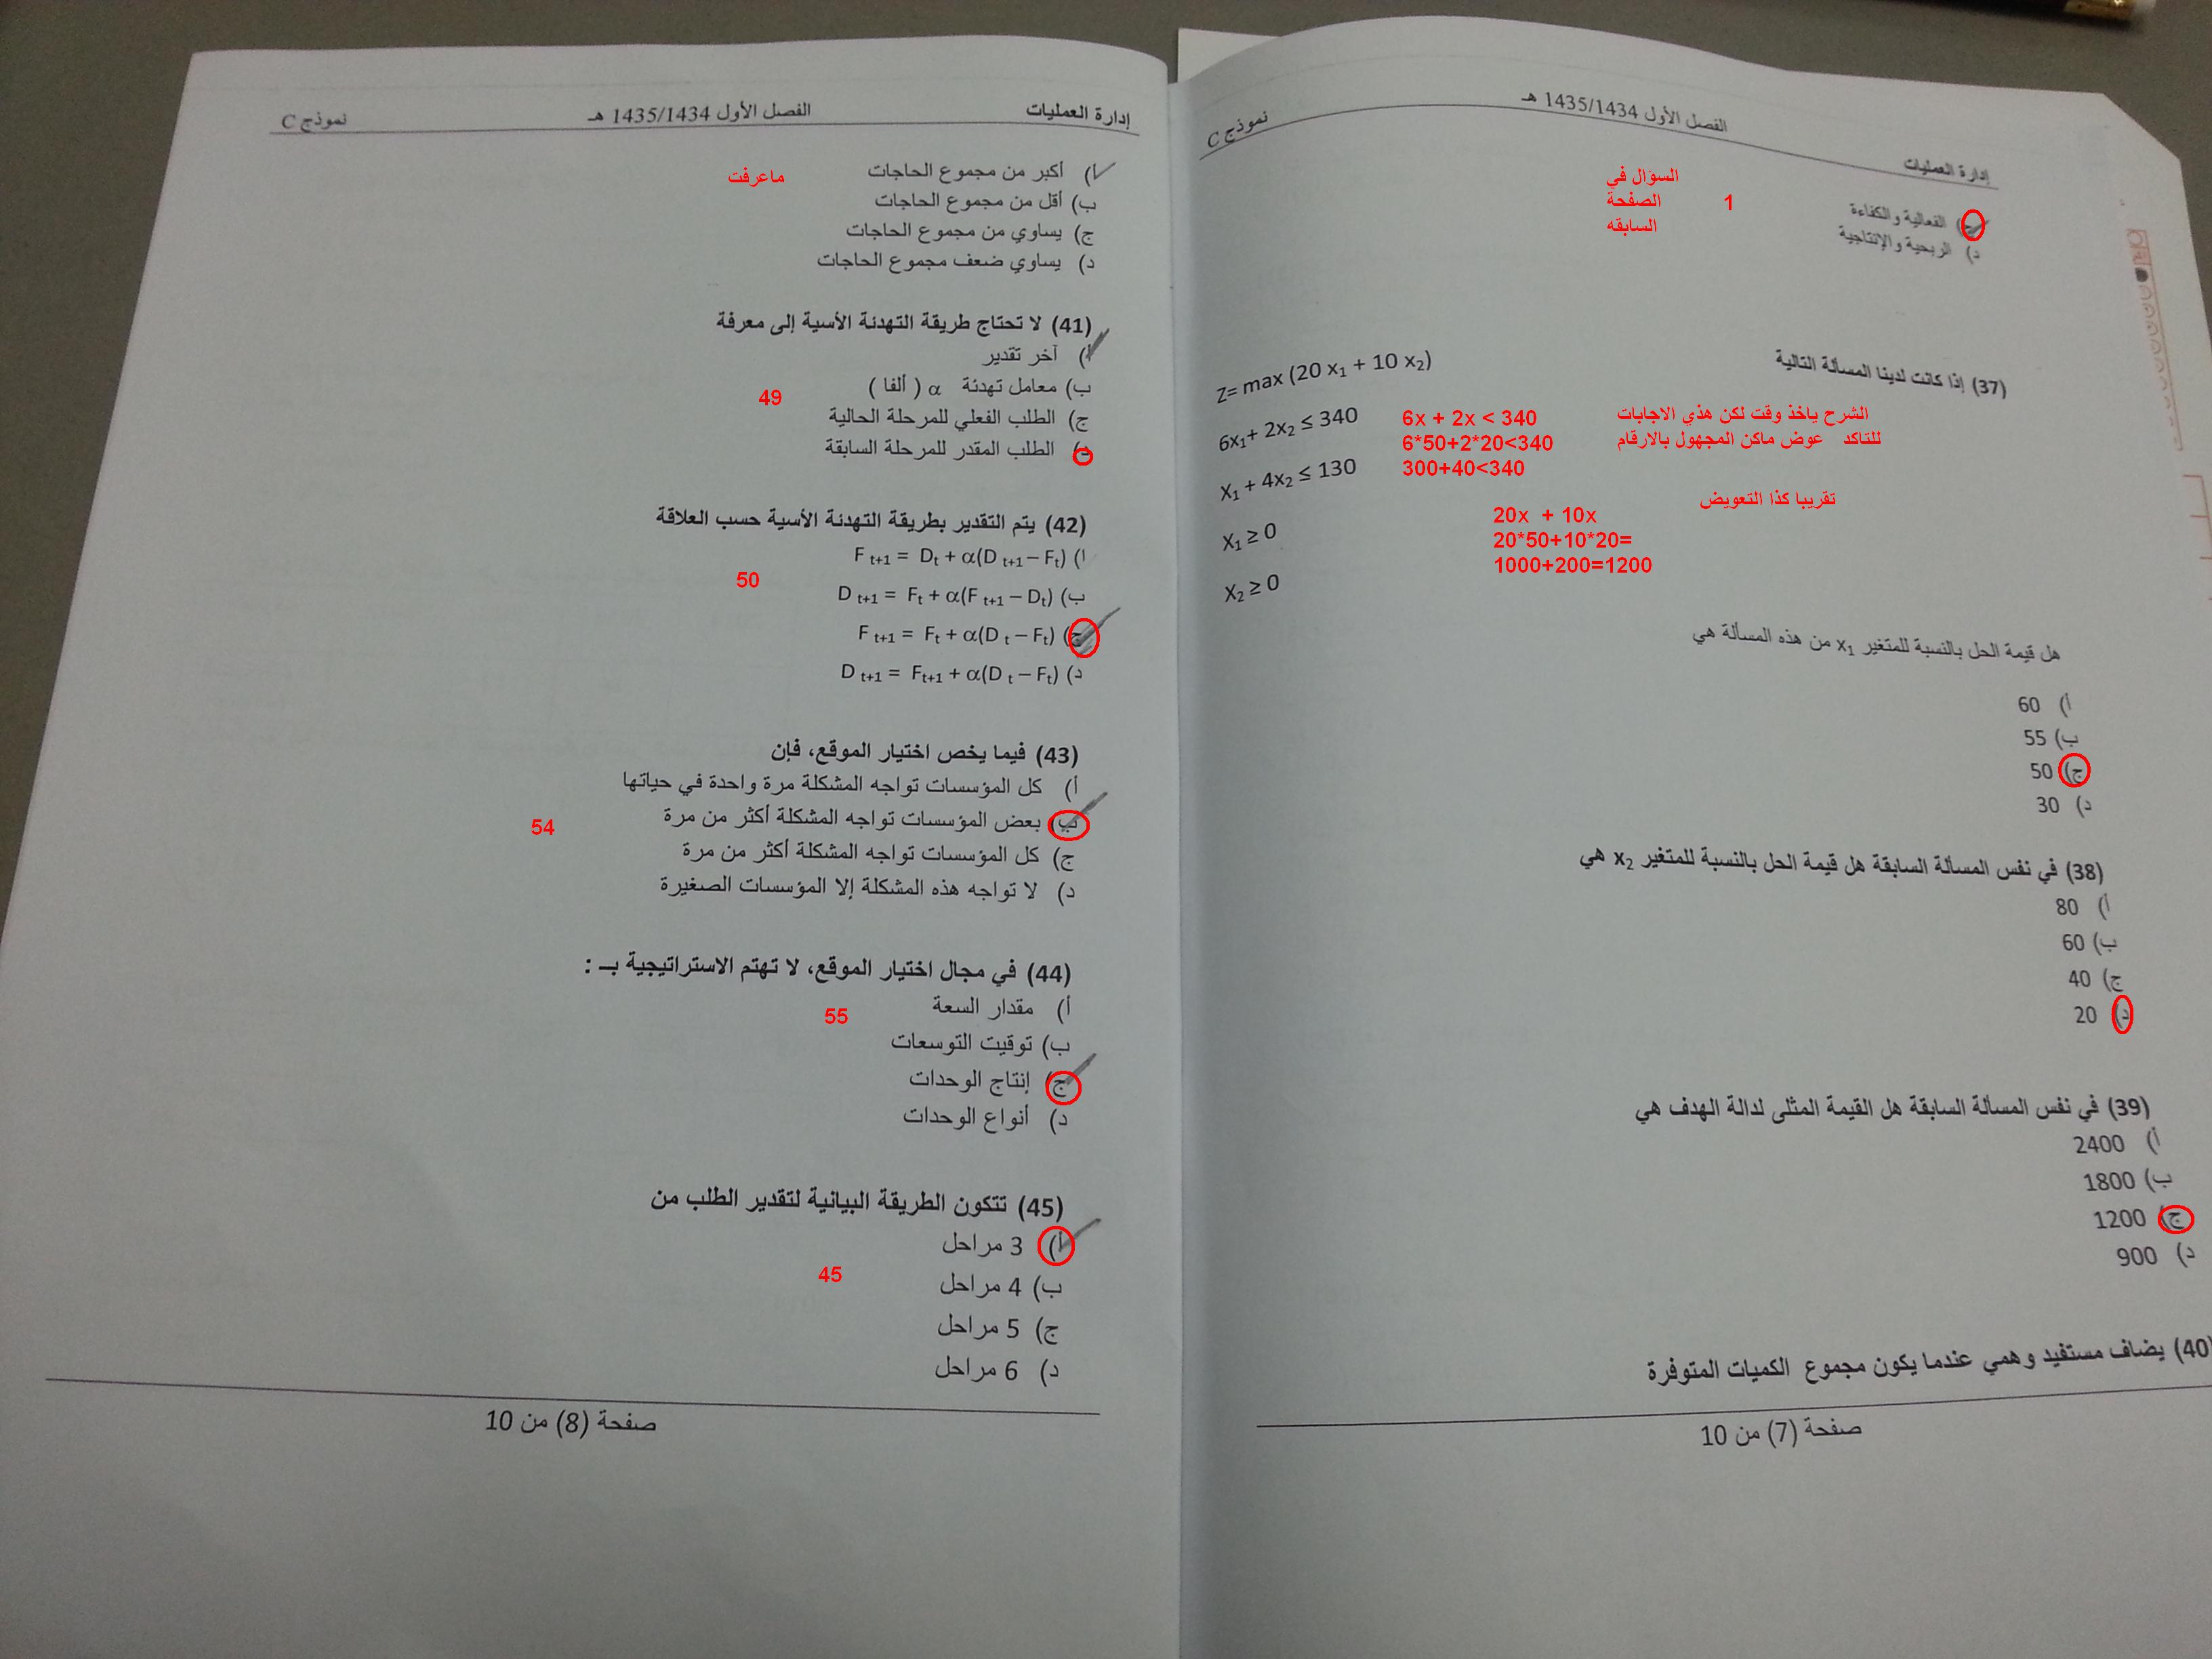 إدارة العمليات الفصل الأول 1435/1434 هـ نموذج C
ج) الفعالية والكفاءة
د) الربحية والإنتاجية
السؤال في
الصفحة
السابقه
1
(37) إذا كانت لدينا المسألة التالية
Z= max (20 x₁ + 10 x₂)
6x₁+ 2x₂ ≤ 340
X₁ + 4x₂ ≤ 130
X₁ ≥ 0
X₂ ≥ 0
6x + 2x < 340
6*50+2*20<340
300+40<340
الشرح ياخذ وقت لكن هذي الاجابات
للتاكد عوض ماكن المجهول بالارقام
تقريبا كذا التعويض
20x + 10x
20*50+10*20=
1000+200=1200
هل قيمة الحل بالنسبة للمتغير x₁ من هذه المسألة هي
أ) 60
ب) 55
ج) 50
د) 30
(38) في نفس المسألة السابقة هل قيمة الحل بالنسبة للمتغير x₂ هي
أ) 80
ب) 60
ج) 40
د) 20
(39) في نفس المسألة السابقة هل القيمة المثلى لدالة الهدف هي
أ) 2400
ب) 1800
ج) 1200
د) 900
(40) يضاف مستفيد وهمي عندما يكون مجموع الكميات المتوفرة
صفحة (7) من 10
إدارة العمليات الفصل الأول 1435/1434 هـ نموذج C
أ) أكبر من مجموع الحاجات
ماعرفت
ب) أقل من مجموع الحاجات
ج) يساوي من مجموع الحاجات
د) يساوي ضعف مجموع الحاجات
(41) لا تحتاج طريقة التهدئة الأسية إلى معرفة
أ) آخر تقدير
ب) معامل تهدئة α ( ألفا )
49
ج) الطلب الفعلي للمرحلة الحالية
د) الطلب المقدر للمرحلة السابقة
(42) يتم التقدير بطريقة التهدئة الأسية حسب العلاقة
أ) F t+1 = Dt + α(D t+1 – Ft)
50
ب) D t+1 = Ft + α(F t+1 – Dt)
ج) F t+1 = Ft + α(D t – Ft)
د) D t+1 = Ft+1 + α(D t – Ft)
(43) فيما يخص اختيار الموقع، فإن
أ) كل المؤسسات تواجه المشكلة مرة واحدة في حياتها
ب) بعض المؤسسات تواجه المشكلة أكثر من مرة
54
ج) كل المؤسسات تواجه المشكلة أكثر من مرة
د) لا تواجه هذه المشكلة إلا المؤسسات الصغيرة
(44) في مجال اختيار الموقع، لا تهتم الاستراتيجية بـ :
أ) مقدار السعة
55
ب) توقيت التوسعات
ج) إنتاج الوحدات
د) أنواع الوحدات
(45) تتكون الطريقة البيانية لتقدير الطلب من
أ) 3 مراحل
45
ب) 4 مراحل
ج) 5 مراحل
د) 6 مراحل
صفحة (8) من 10